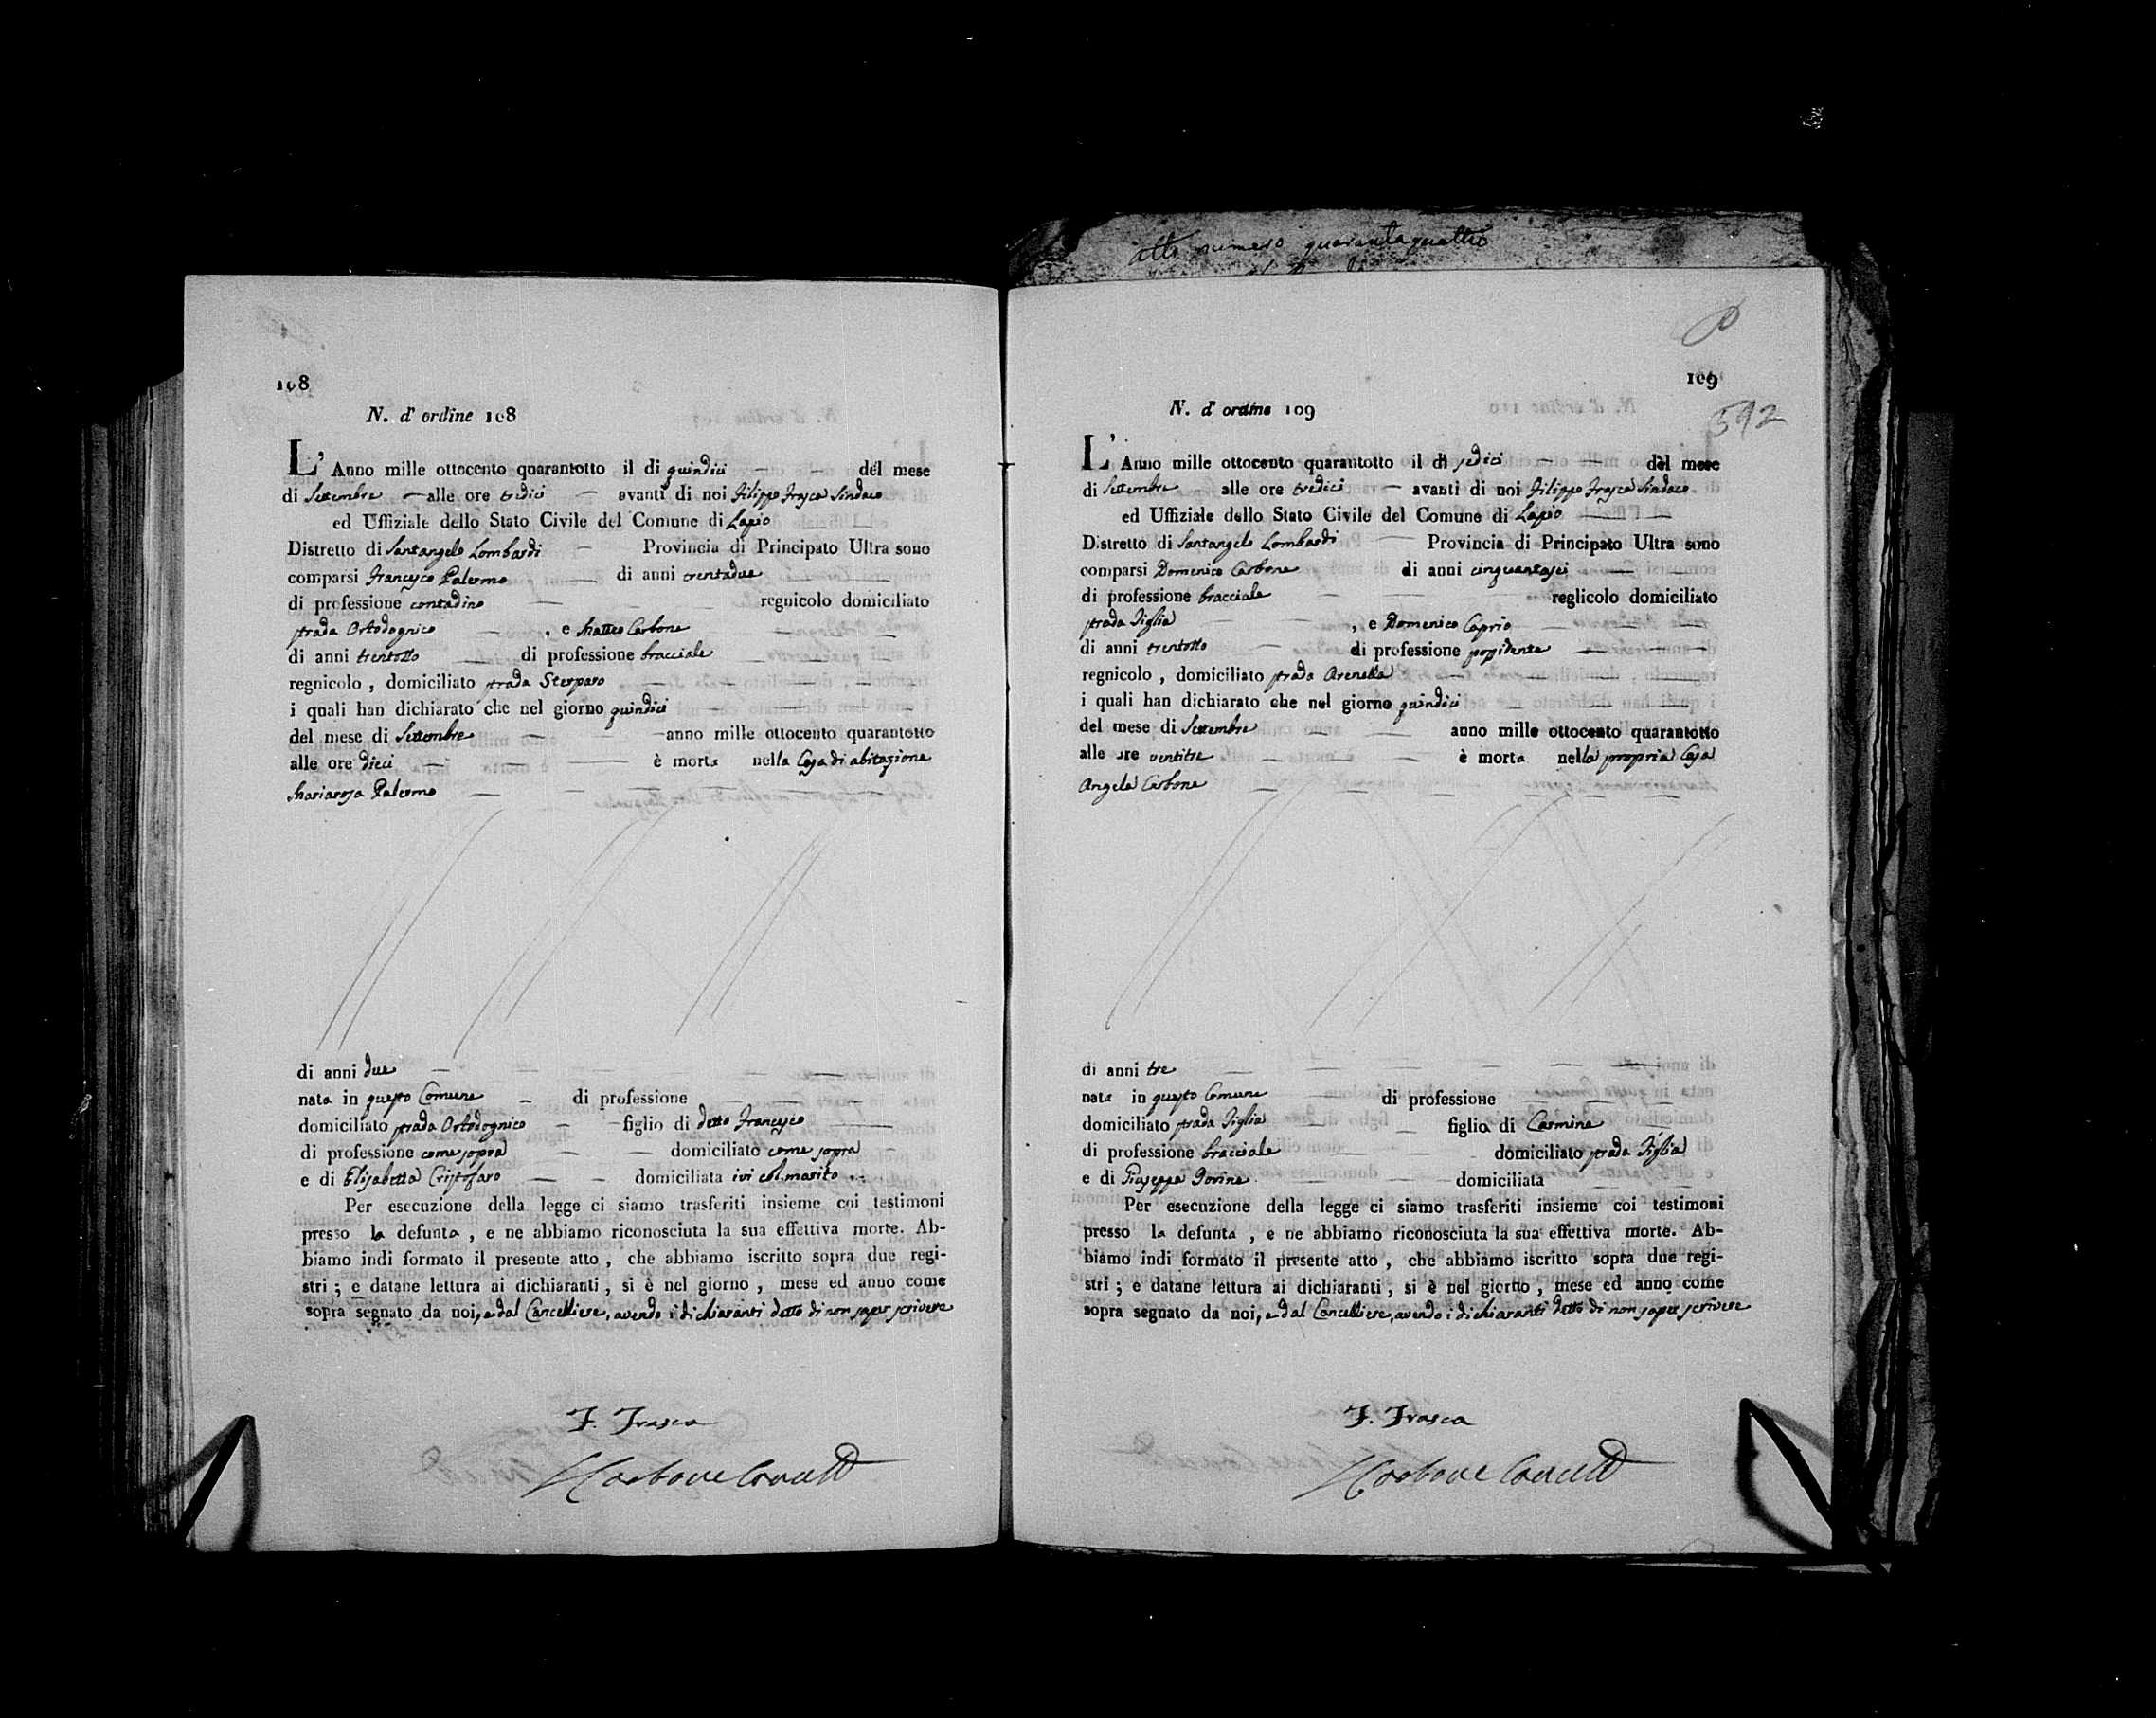 atto numero quarantaquattro
108
N. d' ordine 108
L' Anno mille ottocento quarantotto il di quindici — — del mese
di Settembre — alle ore tredici — avanti di noi Filippo Frasca Sindaco
ed Uffiziale dello Stato Civile del Comune di Lapio
Distretto di Santangelo Lombardi — Provincia di Principato Ultra sono
comparsi Francesco Palermo — di anni trentadue —
di professione contadino — — — regnicolo domiciliato
strada Ortodognico — , e Matteo Carbone — —
di anni trentotto — di professione bracciale — — —
regnicolo , domiciliato strada Sterparo — — — —
i quali han dichiarato che nel giorno quindici — — —
del mese di Settembre — — — anno mille ottocento quarantotto
alle ore dieci — — — è morta nella Casa di abitazione
Mariarosa Palermo — — — — — — —
di anni due — — — — — —
nata in questo Comune — di professione — — —
domiciliato strada Ortodognico — figlio di detto Francesco —
di professione come sopra — — domiciliato come sopra
e di Elisabetta Cristofaro — — domiciliata ivi col marito . .
Per esecuzione della legge ci siamo trasferiti insieme coi testimoni
presso la defunta , e ne abbiamo riconosciuta la sua effettiva morte. Ab-
biamo indi formato il presente atto , che abbiamo iscritto sopra due regi-
stri ; e datane lettura ai dichiaranti , si è nel giorno , mese ed anno come
sopra segnato da noi, e dal Cancelliere, avendo i dichiaranti detto di non saper scrivere
F. Frasca
Carbone Cancell
109
592
N. d' ordine 109
L' Anno mille ottocento quarantotto il di sedici — — del mese
di Settembre alle ore tredici — avanti di noi Filippo Frasca Sindaco
ed Uffiziale dello Stato Civile del Comune di Lapio — —
Distretto di Santangelo Lombardi — Provincia di Principato Ultra sono
comparsi Domenico Carbone di anni cinquantasei — —
di professione bracciale — — — reglicolo domiciliato
strada Tiglia — — , e Domenico Caprio — — —
di anni trentotto — di professione possidente — — —
regnicolo , domiciliato strada Arenella — — —
i quali han dichiarato che nel giorno quindici — — —
del mese di Settembre — — — anno mille ottocento quarantotto
alle ore ventitre — — — è morta nella propria Casa
Angela Carbone — — — — — — —
di anni tre — — — — — — —
nata in questo Comune di professione — — —
domiciliato strada Tiglia — — figlia di Carmine —
di professione bracciale — — — domiciliato strada Tiglia
e di Giuseppa Iovine — — domiciliata — —
Per esecuzione della legge ci siamo trasferiti insieme coi testimoni
presso la defunta , e ne abbiamo riconosciuta la sua effettiva morte. Ab-
biamo indi formato il presente atto , che abbiamo iscritto sopra due regi-
stri ; e datane lettura ai dichiaranti , si è nel giorno , mese ed anno come
sopra segnato da noi, e dal Cancelliere, avendo i dichiaranti detto di non saper scrivere
F. Frasca
Carbone Cancell